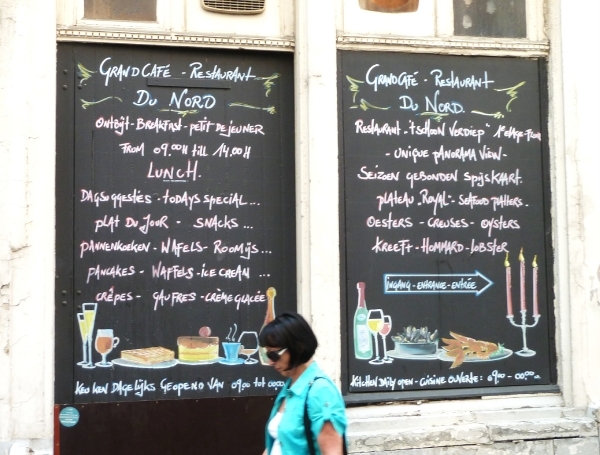 GRAND CAFÉ - RESTAURANT
DU NORD
ONTBIJT - BREAKFAST - PETIT DEJEUNER
FROM 09.00H till 14.00H
LUNCH.
DAGSUGGESTIES - TODAYS SPECIAL ...
PLAT DU JOUR - SNACKS ...
PANNENKOEKEN - WAFELS - ROOMIJS ...
PANCAKES - WAFFELS - ICE CREAM ...
CRÊPES - GAUFRES - CRÈME GLACÉE
KEUKEN DAGELIJKS GEOPEND VAN 09.00 TOT 00.00
GRAND CAFÉ - RESTAURANT
DU NORD
RESTAURANT - 'TSCHOON VERDIEP 1e ETAGE - FLOOR
- UNIQUE PANORAMA VIEW -
SEIZOEN GEBONDEN SPIJSKAART.
PLATEAU ROYAL - SEAFOOD PLATTERS.
OESTERS - CREUSES - OYSTERS
KREEFT - HOMMARD - LOBSTER
INGANG - ENTRANCE - ENTRÉE
KITCHEN DAILY OPEN - CUISINE OUVERTE: 09.00 - 00.00H.